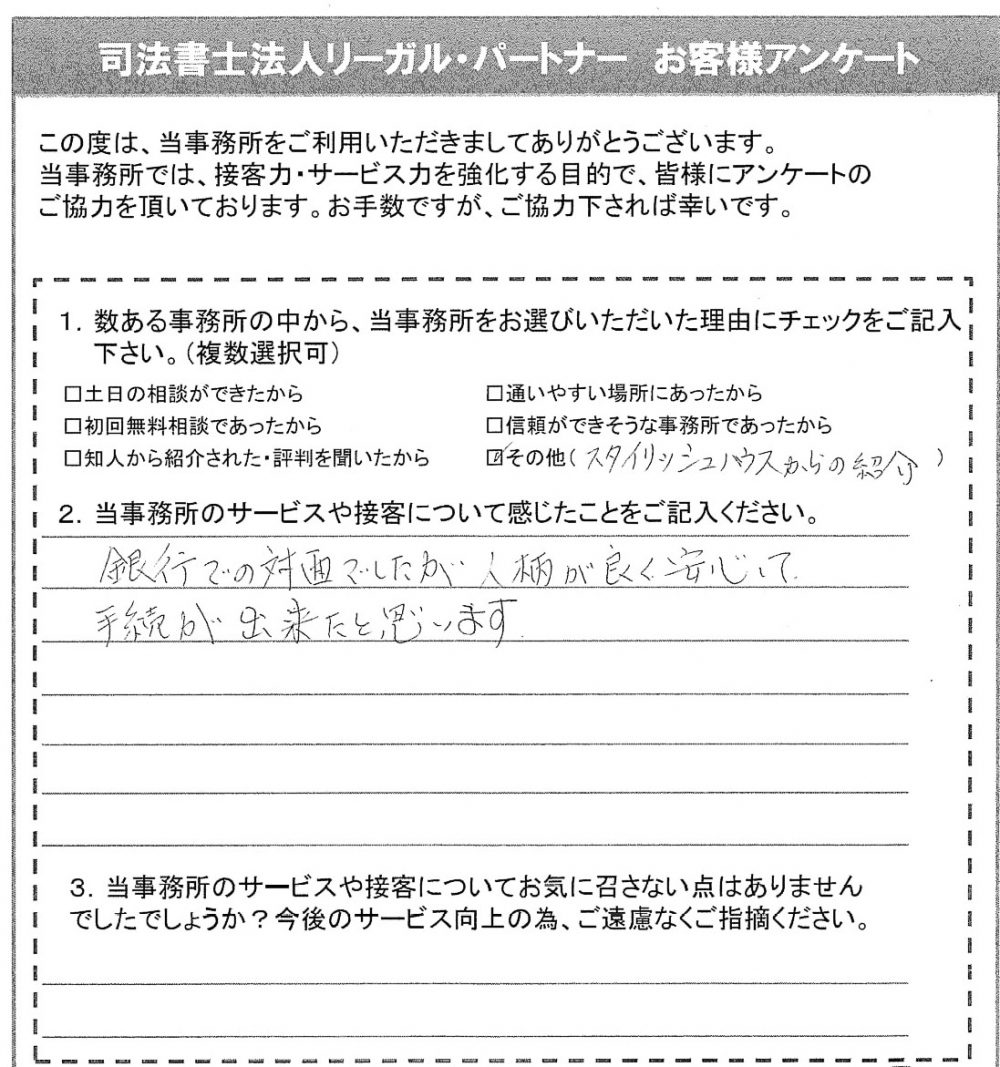 司法書士法人リーガル・パートナー お客様アンケート
この度は、当事務所をご利用いただきましてありがとうございます。
当事務所では、接客力・サービス力を強化する目的で、皆様にアンケートの
ご協力を頂いております。お手数ですが、ご協力下されば幸いです。
1. 数ある事務所の中から、当事務所をお選びいただいた理由にチェックをご記入
下さい。(複数選択可)
□土日の相談ができたから □通いやすい場所にあったから
□初回無料相談であったから □信頼ができそうな事務所であったから
□知人から紹介された・評判を聞いたから ☑その他(スタイリッシュハウスからの紹介)
2. 当事務所のサービスや接客について感じたことをご記入ください。
銀行での対面でしたが人柄が良く安心して
手続が出来たと思います
3. 当事務所のサービスや接客についてお気に召さない点はありません
でしたでしょうか?今後のサービス向上の為、ご遠慮なくご指摘ください。